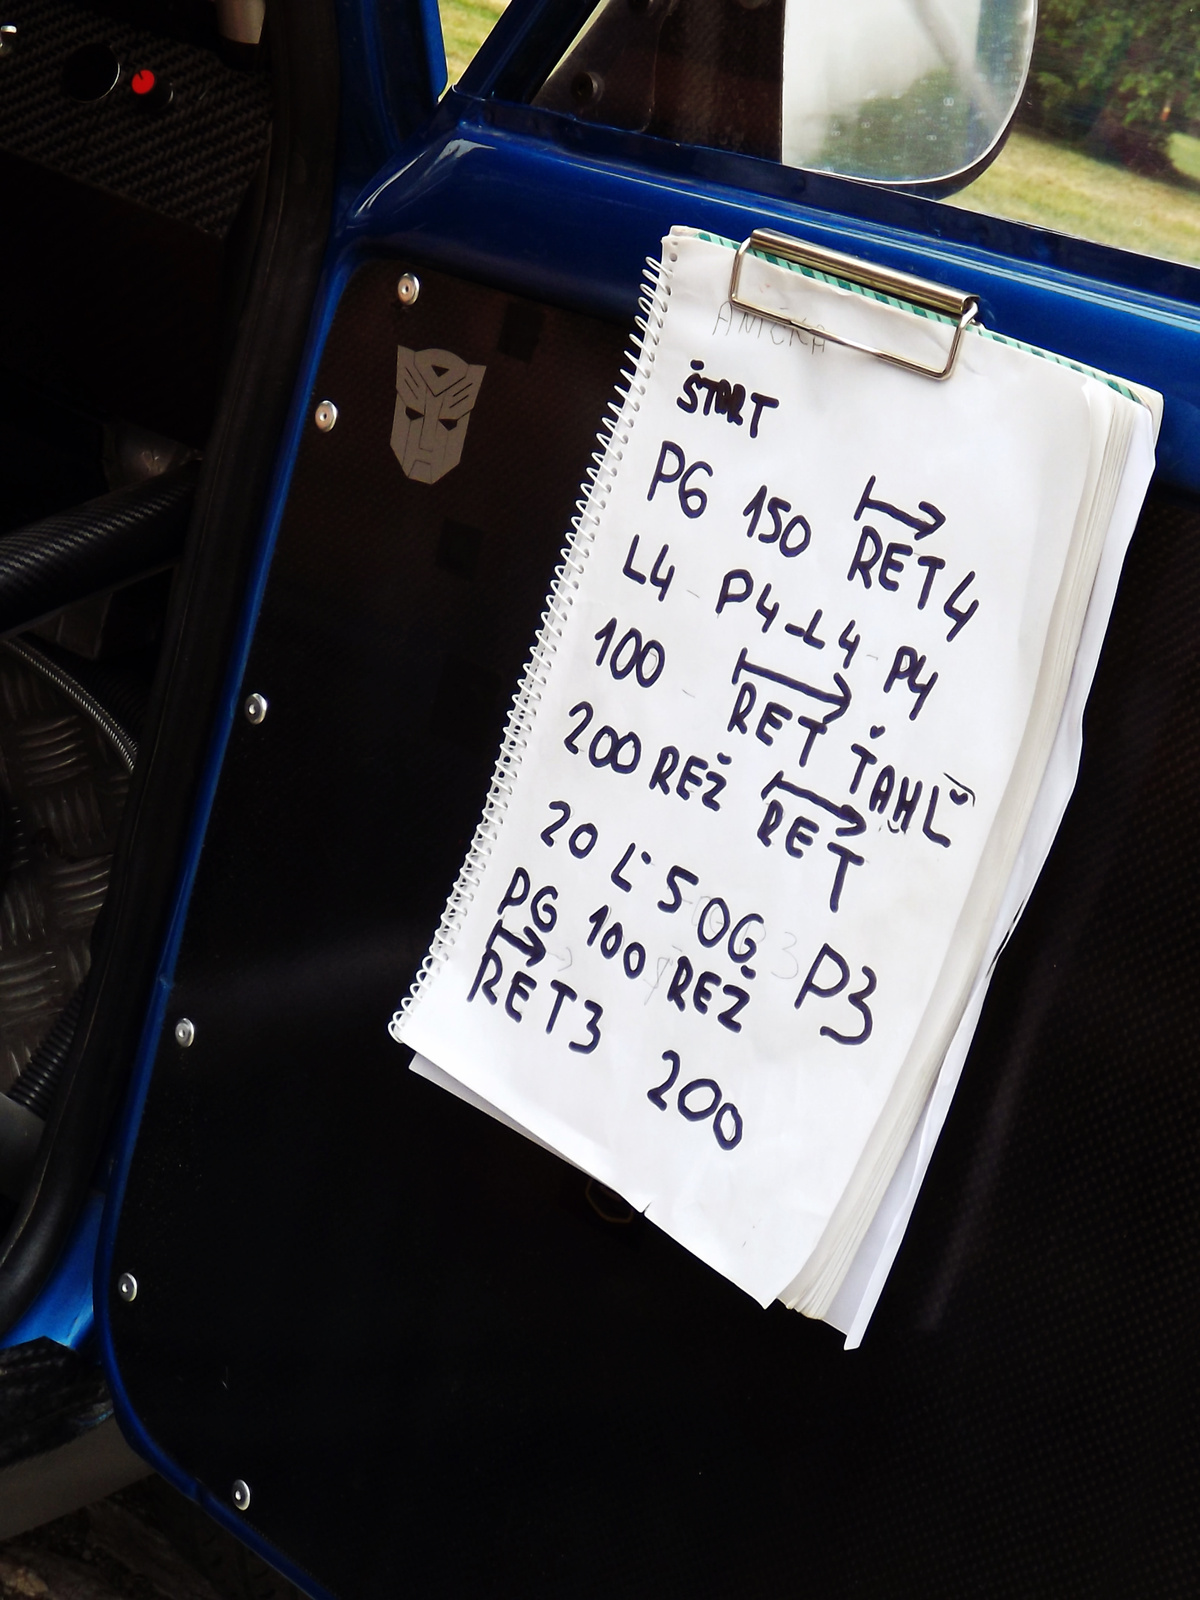 ANIČKA
ŠTART
PG 150 RET 4
L4 - P4 - L4 - P4
100 - RET ŤAHL
200 REŽ RET
20 L 5 OG P3
PG 100 REŽ
RET 3 200